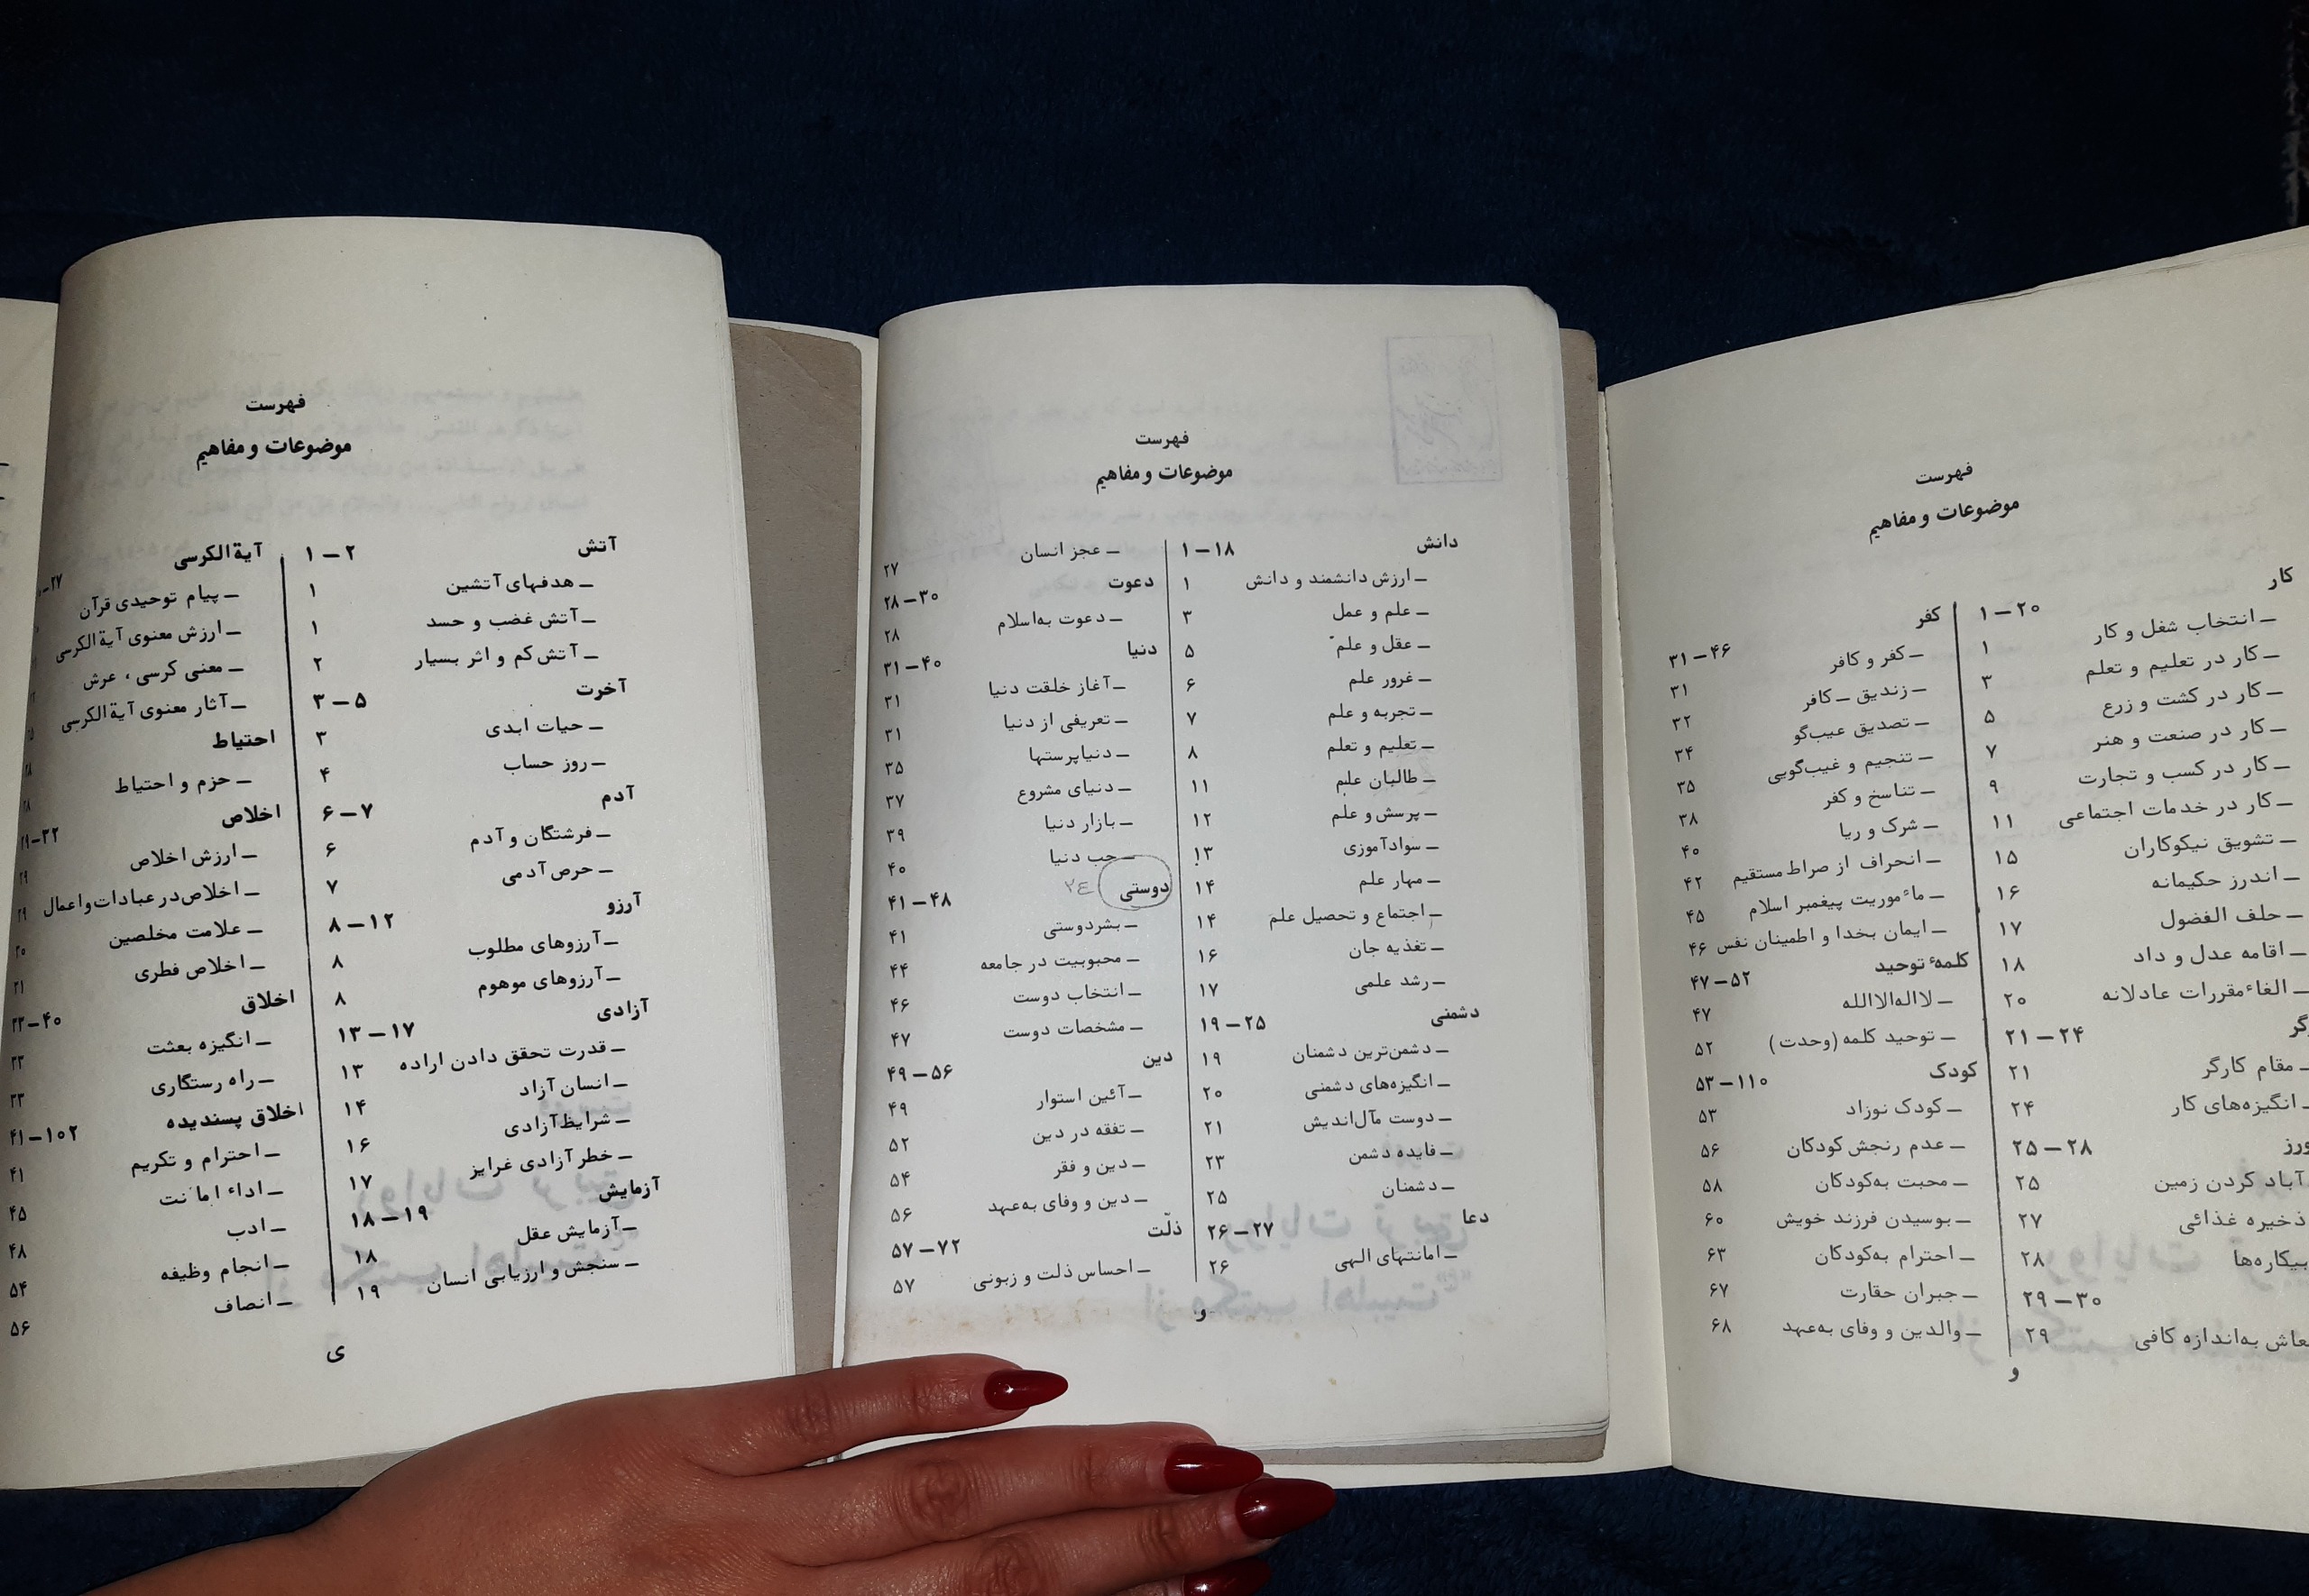 فهرست
موضوعات و مفاهیم
آتش ۱–۲
– هدفهای آتشین ۱
– آتش غضب و حسد ۱
– آتش کم و اثر بسیار ۲
آخرت ۳–۵
– حیات ابدی ۳
– روز حساب ۴
آدم ۶–۷
– فرشتگان و آدم ۶
– حرص آدمی ۷
آرزو ۸–۱۲
– آرزوهای مطلوب ۸
– آرزوهای موهوم ۸
آزادی ۱۳–۱۷
– قدرت تحقق دادن اراده ۱۳
– انسان آزاد ۱۴
– شرایط آزادی ۱۶
– خطر آزادی غرایز ۱۷
آزمایش ۱۸–۱۹
– آزمایش عقل ۱۸
– سنجش و ارزیابی انسان ۱۹
آیة الکرسی
– پیام توحیدی قرآن
– ارزش معنوی آیة الکرسی
– معنی کرسی ، عرش
– آثار معنوی آیة الکرسی
احتیاط
– حزم و احتیاط
اخلاص
– ارزش اخلاص
– اخلاص در عبادات و اعمال
– علامت مخلصین
– اخلاص فطری
اخلاق ۳۳–۴۰
– انگیزه بعثت ۳۳
– راه رستگاری ۳۳
اخلاق پسندیده ۴۱–۱۰۲
– احترام و تکریم ۴۱
– اداء امانت ۴۵
– ادب ۴۸
– انجام وظیفه ۵۴
– انصاف ۵۶
ی
فهرست
موضوعات و مفاهیم
دانش ۱–۱۸
– ارزش دانشمند و دانش ۱
– علم و عمل ۳
– عقل و علم ۵
– غرور علم ۶
– تجربه و علم ۷
– تعلیم و تعلم ۸
– طالبان علم ۱۱
– پرسش و علم ۱۲
– سوادآموزی ۱۳
– مهار علم ۱۴
– اجتماع و تحصیل علم ۱۴
– تغذیه جان ۱۶
– رشد علمی ۱۷
دشمنی ۱۹–۲۵
– دشمن‌ترین دشمنان ۱۹
– انگیزه‌های دشمنی ۲۰
– دوست مآل‌اندیش ۲۱
– فایده دشمن ۲۳
– دشمنان ۲۵
دعا ۲۶–۲۷
– امانتهای الهی ۲۶
– عجز انسان ۲۷
دعوت ۲۸–۳۰
– دعوت به‌اسلام ۲۸
دنیا ۳۱–۴۰
– آغاز خلقت دنیا ۳۱
– تعریفی از دنیا ۳۱
– دنیاپرستها ۳۵
– دنیای مشروع ۳۷
– بازار دنیا ۳۹
– حب دنیا ۴۰
دوستی ۴۱–۴۸
– بشردوستی ۴۱
– محبوبیت در جامعه ۴۴
– انتخاب دوست ۴۶
– مشخصات دوست ۴۷
دین ۴۹–۵۶
– آئین استوار ۴۹
– تفقه در دین ۵۲
– دین و فقر ۵۴
– دین و وفای به‌عهد ۵۶
ذلّت ۵۷–۷۲
– احساس ذلت و زبونی ۵۷
و
فهرست
موضوعات و مفاهیم
کار ۱–۲۰
– انتخاب شغل و کار ۱
– کار در تعلیم و تعلم ۳
– کار در کشت و زرع ۵
– کار در صنعت و هنر ۷
– کار در کسب و تجارت ۹
– کار در خدمات اجتماعی ۱۱
– تشویق نیکوکاران ۱۵
– اندرز حکیمانه ۱۶
– حلف الفضول ۱۷
– اقامه عدل و داد ۱۸
– الغاء مقررات عادلانه ۲۰
۲۱–۲۴
– مقام کارگر ۲۱
– انگیزه‌های کار ۲۴
۲۵–۲۸
آباد کردن زمین ۲۵
ذخیره غذائی ۲۷
بیکاره‌ها ۲۸
۲۹–۳۰
به‌اندازه کافی ۲۹
کفر ۳۱–۴۶
– کفر و کافر ۳۱
– زندیق – کافر ۳۲
– تصدیق عیب‌گو ۳۴
– تنجیم و غیب‌گویی ۳۵
– تناسخ و کفر ۳۸
– شرک و ریا ۴۰
– انحراف از صراط مستقیم ۴۲
– مأموریت پیغمبر اسلام ۴۵
– ایمان بخدا و اطمینان نفس ۴۶
کلمهٔ توحید ۴۷–۵۲
– لااله‌الاالله ۴۷
– توحید کلمه (وحدت) ۵۲
کودک ۵۳–۱۱۰
– کودک نوزاد ۵۳
– عدم رنجش کودکان ۵۶
– محبت به‌کودکان ۵۸
– بوسیدن فرزند خویش ۶۰
– احترام به‌کودکان ۶۳
– جبران حقارت ۶۷
– والدین و وفای به‌عهد ۶۸
و